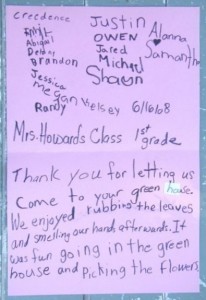 creedence
Justin
OWEN
Alanna
Jared
Samantha
Abigail
Michael
Brandon
Shawn
Jessica
megan
Kelsey
6/16/08
Randy
Mrs. Howards Class 1st
grade
Thank you for letting us
Come to your green house.
We enjoyed rubbing the leaves
and smelling our hands afterwards. It
was fun going in the green
house and Picking the flowers